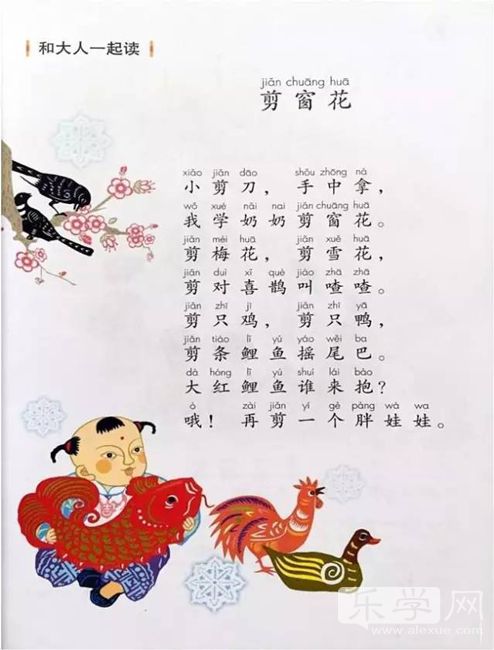 和大人一起读
jiǎn chuāng huā
剪窗花
xiǎo jiǎn dāo shǒu zhōng ná
小剪刀，手中拿，
wǒ xué nǎi nai jiǎn chuāng huā
我学奶奶剪窗花。
jiǎn méi huā jiǎn xuě huā
剪梅花，剪雪花，
jiǎn duì xǐ què jiào zhā zhā
剪对喜鹊叫喳喳。
jiǎn zhī jī jiǎn zhī yā
剪只鸡，剪只鸭，
jiǎn tiáo lǐ yú yáo wěi ba
剪条鲤鱼摇尾巴。
dà hóng lǐ yú shuí lái bào
大红鲤鱼谁来抱？
ò zài jiǎn yí gè pàng wá wa
哦！再剪一个胖娃娃。
乐学网
www.alexue.com